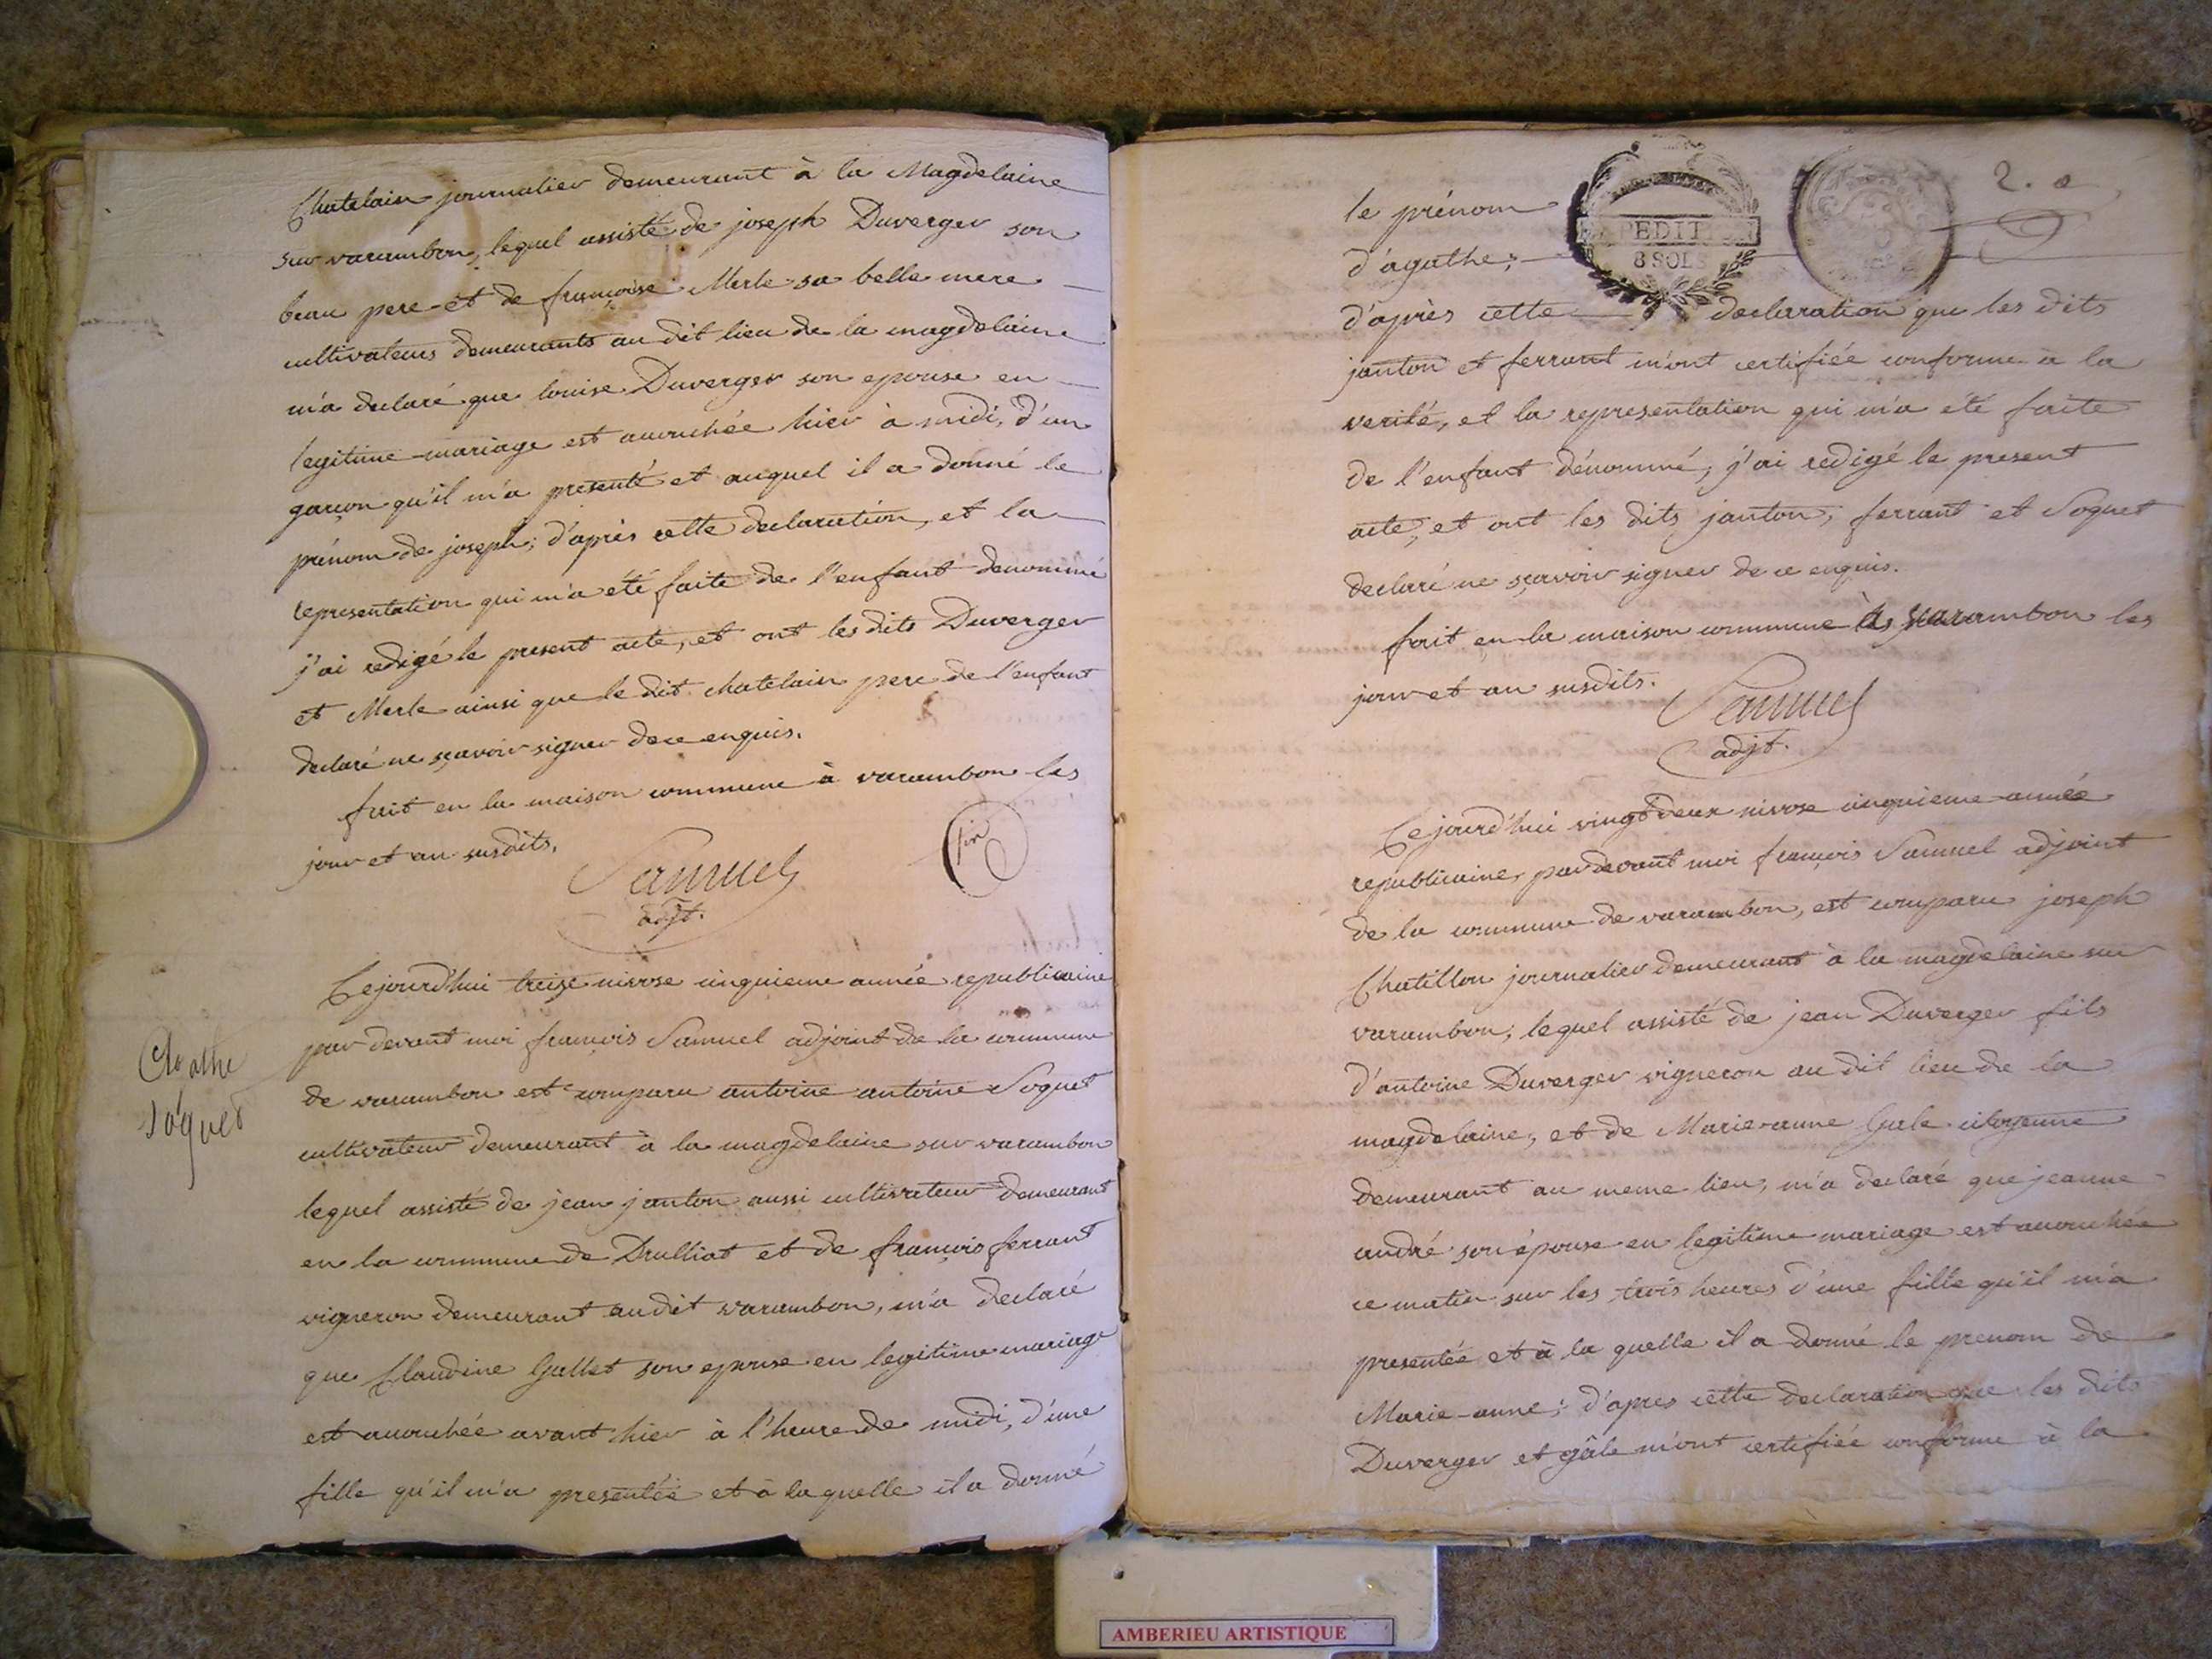 Chatelain journalier demeurant à la Magdelaine
sur varambon, lequel assisté de joseph Duverger son
beau pere et de françoise Merle sa belle mere
cultivateurs demeurants au dit lieu de la magdelaine
m'a declaré que louise Duverger son epouse en
legitime mariage est accouchée hier à midi, d'un
garçon qu'il m'a presenté et auquel il a donné le
prénom de joseph; d'après cette declaration, et la
representation qui m'a été faite de l'enfant denommé
j'ai redigé le present acte, et ont les dits Duverger
et Merle ainsi que le dit chatelain pere de l'enfant
declaré ne sçavoir signer de ce enquis.
fait en la maison commune à varambon les
jour et an susdits.
Samuel
adjt.
Cejourd'hui treize nivose cinquieme année republicaine
par devant moi françois Samuel adjoint de la commune
de varambon est comparu antoine antoine Soquet
cultivateur demeurant à la magdelaine sur varambon
lequel assisté de jean janton aussi cultivateur demeurant
en la commune de Drulliat et de françois ferrant
vigneron demeurant audit varambon, m'a declaré
que Claudine Gallet son epouse en legitime mariage
est accouchée avant hier à l'heure de midi, d'une
fille qu'il m'a presentée et à laquelle il a donné
Agathe
Soquet
2. e
le prénom
EXPEDITION
8 SOLS
d'agathe;
d'après cette declaration que les dits
janton et ferrant m'ont certifiée conforme à la
verité, et la representation qui m'a été faite
de l'enfant dénommé, j'ai redigé le present
acte, et ont les dits janton, ferrant et Soquet
declaré ne sçavoir signer de ce enquis.
fait en la maison commune à varambon les
jour et an susdits.
Samuel
adjt.
Cejourd'hui vingt deux nivose cinquieme année
republicaine, pardevant moi françois Samuel adjoint
de la commune de varambon, est comparu joseph
Chatillon journalier demeurant à la magdelaine sur
varambon; lequel assisté de jean Duverger fils
d'antoine Duverger vigneron au dit lieu de la
magdelaine, et de Marie-anne Gale citoyenne
demeurant au meme lieu, m'a declaré que jeanne
andré son épouse en legitime mariage est accouchée
ce matin sur les trois heures d'une fille qu'il m'a
presentée et à la quelle il a donné le prenom de
Marie-anne; d'apres cette declaration que les dits
Duverger et gâle m'ont certifiée conforme à la
AMBERIEU ARTISTIQUE